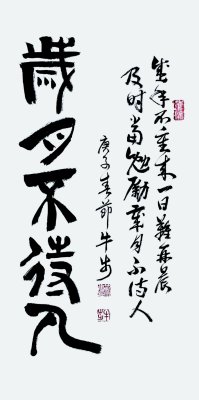 盛年不重来一日難再晨
及时當勉勵歲月不待人
庚子春節牛步
歲月不待人